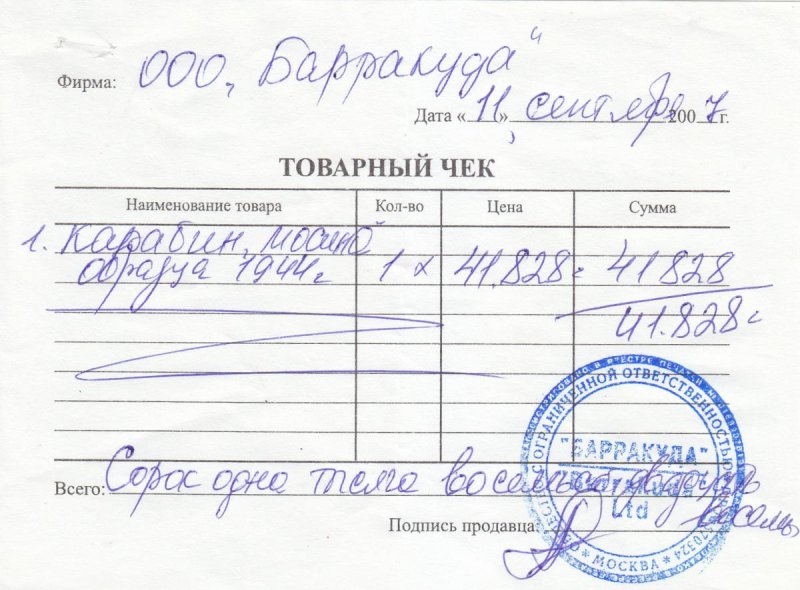 Фирма: ООО „Барракуда“
Дата «11» сентября 2007 г.
ТОВАРНЫЙ ЧЕК
Наименование товара Кол-во Цена Сумма
1. Карабин „Мосина“
образца 1944г 1 x 41.828= 41828
41.828=
Всего: Сорок одна тысяча восемьсот двадцать
восемь
Подпись продавца:
С ОГРАНИЧЕННОЙ ОТВЕТСТВЕННОСТЬЮ
"БАРРАКУДА"
"Barrakuda"
Ltd
* МОСКВА *